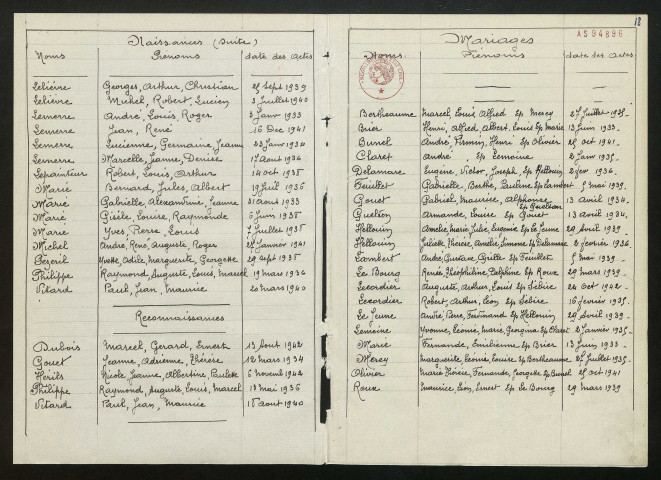 Naissances (Suite)
Noms Prénoms date des Actes
Lelièvre Georges, Arthur, Christian 25 Sept 1939
Lelièvre Michel, Robert, Lucien 3 Juillet 1940
Lemerre André, Louis, Roger 2 Janv 1933
Lemerre Jean, René 16 Dec 1941
Lemerre Lucienne, Germaine, Jeanne 23 Janv 1934
Lemerre Marcelle, Jeanne, Denise 17 Aout 1936
Lepainteur Robert, Louis, Arthur 14 Oct 1935
Marie Bernard, Jules, Albert 19 Juil 1936
Marie Gabrielle, Alexandrine, Jeanne 31 Aout 1933
Marie Gisèle, Louise, Raymonde 6 Juin 1938
Marie Yves, Pierre, Louis 7 Juillet 1935
Michel André, René, Auguste, Roger 28 Janvier 1941
Pezeril Yvette, Odile, Marguerite, Georgette 29 Sept 1935
Philippe Raymond, Auguste, Louis, Marcel 19 Mars 1936
Vitard Paul, Jean, Maurice 20 Mars 1940
Reconnaissances
Dubois Marcel, Gerard, Ernest 13 Aout 1942
Gouet Jeanne, Adrienne, Thérèse 12 Mars 1934
Nicole, Jeanne, Albertine, Paulette 6 Novemb 1942
Philippe Raymond, Auguste, Louis, Marcel 13 Mai 1936
Vitard Paul, Jean, Maurice 18 Aout 1940
18
AS94896
Mariages
Noms Prénoms date des Actes
Bertheaume Marcel, Louis, Alfred Ep Mercy 27 Juillet 1935
Brier Henri, Alfred, Albert, Louis Ep Marie 13 Juin 1933
Bunel André, Firmin, Henri Ep Olivier 25 Oct 1941
Claret André Ep Lemoine 2 Janv 1935
Delamare Eugène, Victor, Joseph Ep Hellouin 2 Fev 1936
Feuillet Gabrielle, Berthe, Pauline Ep Lambert 5 Mai 1939
Gouet Gabriel, Maurice, Alphonse 13 Avril 1934
Ep Guelton
Guelton Armande, Louise Ep Gouet 13 Avril 1934
Hellouin Amélie, Marie, Julie, Eugénie Ep Le Jeune 29 Avril 1939
Hellouin Juliette, Thérèse, Amélie, Simone Ep Delamare 2 Fevrier 1936
Lambert André, Gustave, Cyrille Ep Feuillet 5 Mai 1939
Le Bourg Renée, Théophiline, Delphine Ep Roux 29 Mars 1939
Lecordier Auguste, Arthur, Louis Ep Lebire 24 Oct 1942
Lecordier Robert, Arthur, Léon Ep Lebire 16 Fevrier 1935
Le Jeune André, Pierre, Ferdinand Ep Hellouin 29 Avril 1939
Lemoine Yvonne, Léonie, Marie, Georgina Ep Claret 2 Janvier 1935
Marie Fernande, Emilienne Ep Brier 13 Juin 1933
Mercy Marguerite, Léonie, Louise Ep Bertheaume 27 Juillet 1935
Olivier Marie, Thérèse, Fernande, Georgette Ep Bunel 25 Oct 1941
Roux Maurice, Léon, Ernest Ep Le Bourg 29 Mars 1939